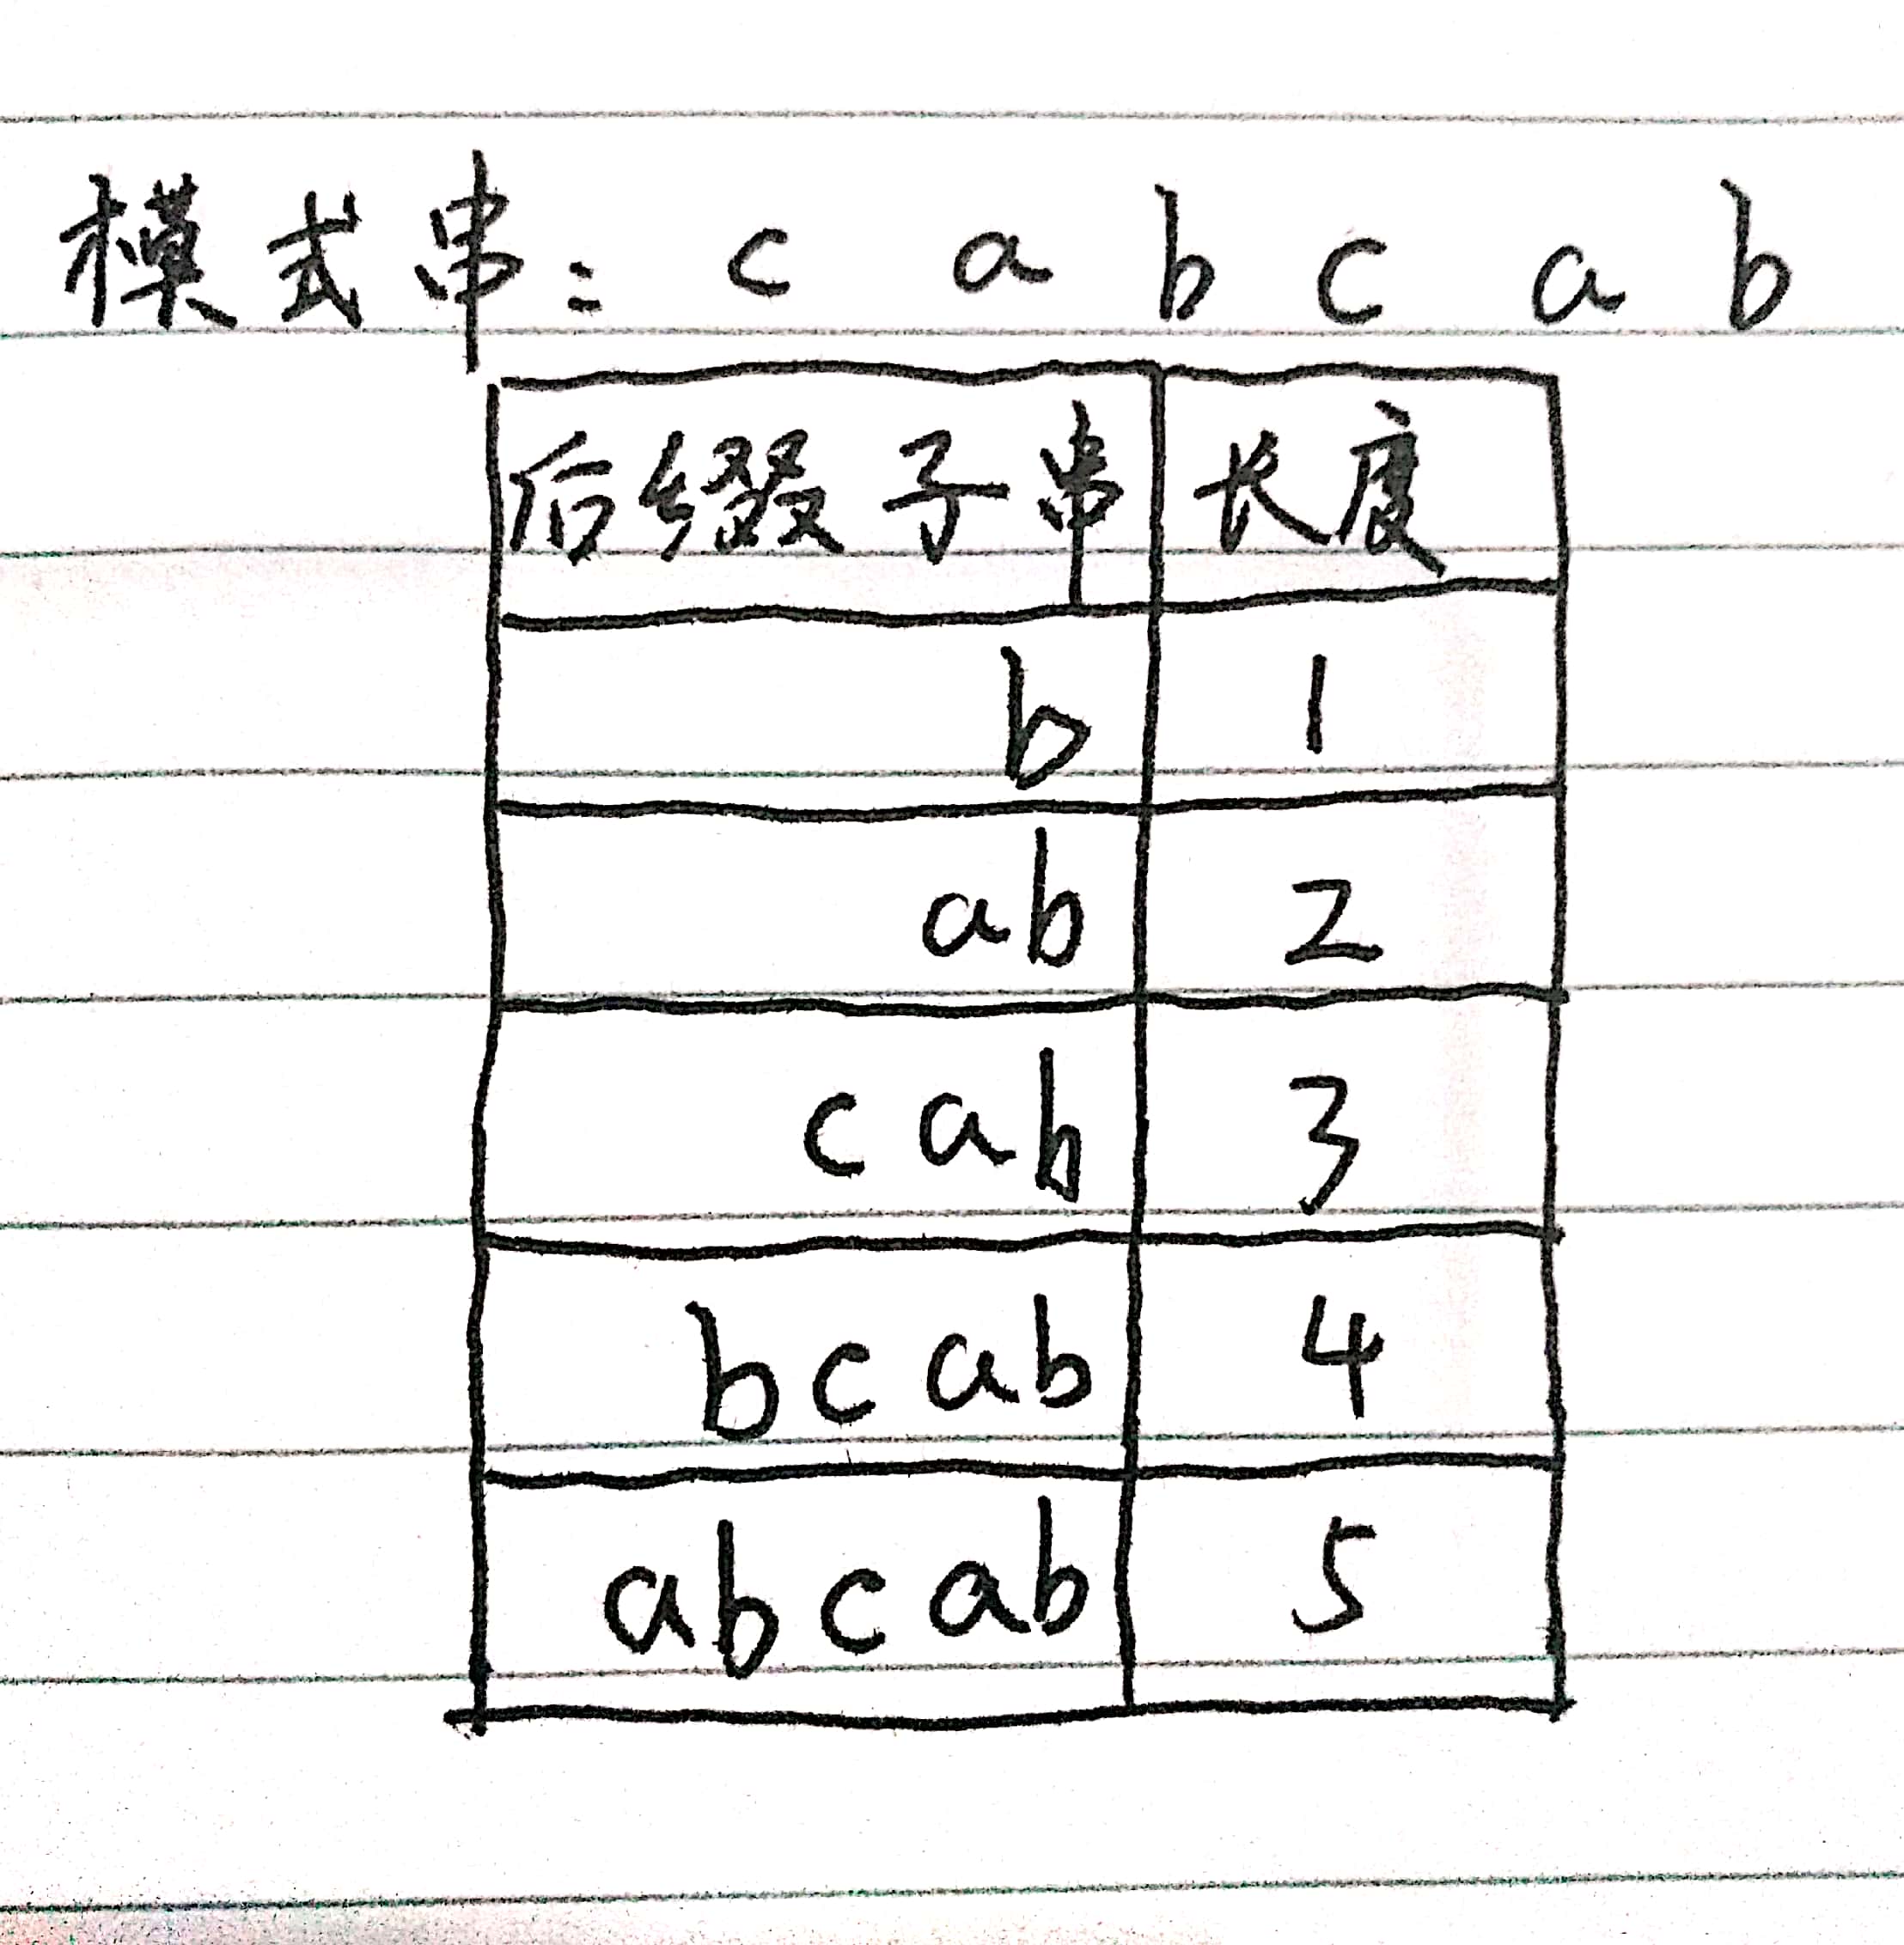 模式串: c a b c a b
后缀子串 长度
b 1
ab 2
cab 3
bcab 4
abcab 5